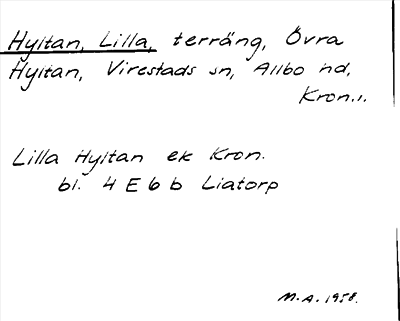 Hyltan, Lilla, terräng, Övra
Hyltan, Virestads sn, Allbo hd,
Kron.l.
Lilla Hyltan ek Kron.
bl. 4 E 6 b Liatorp
M.A. 1958.